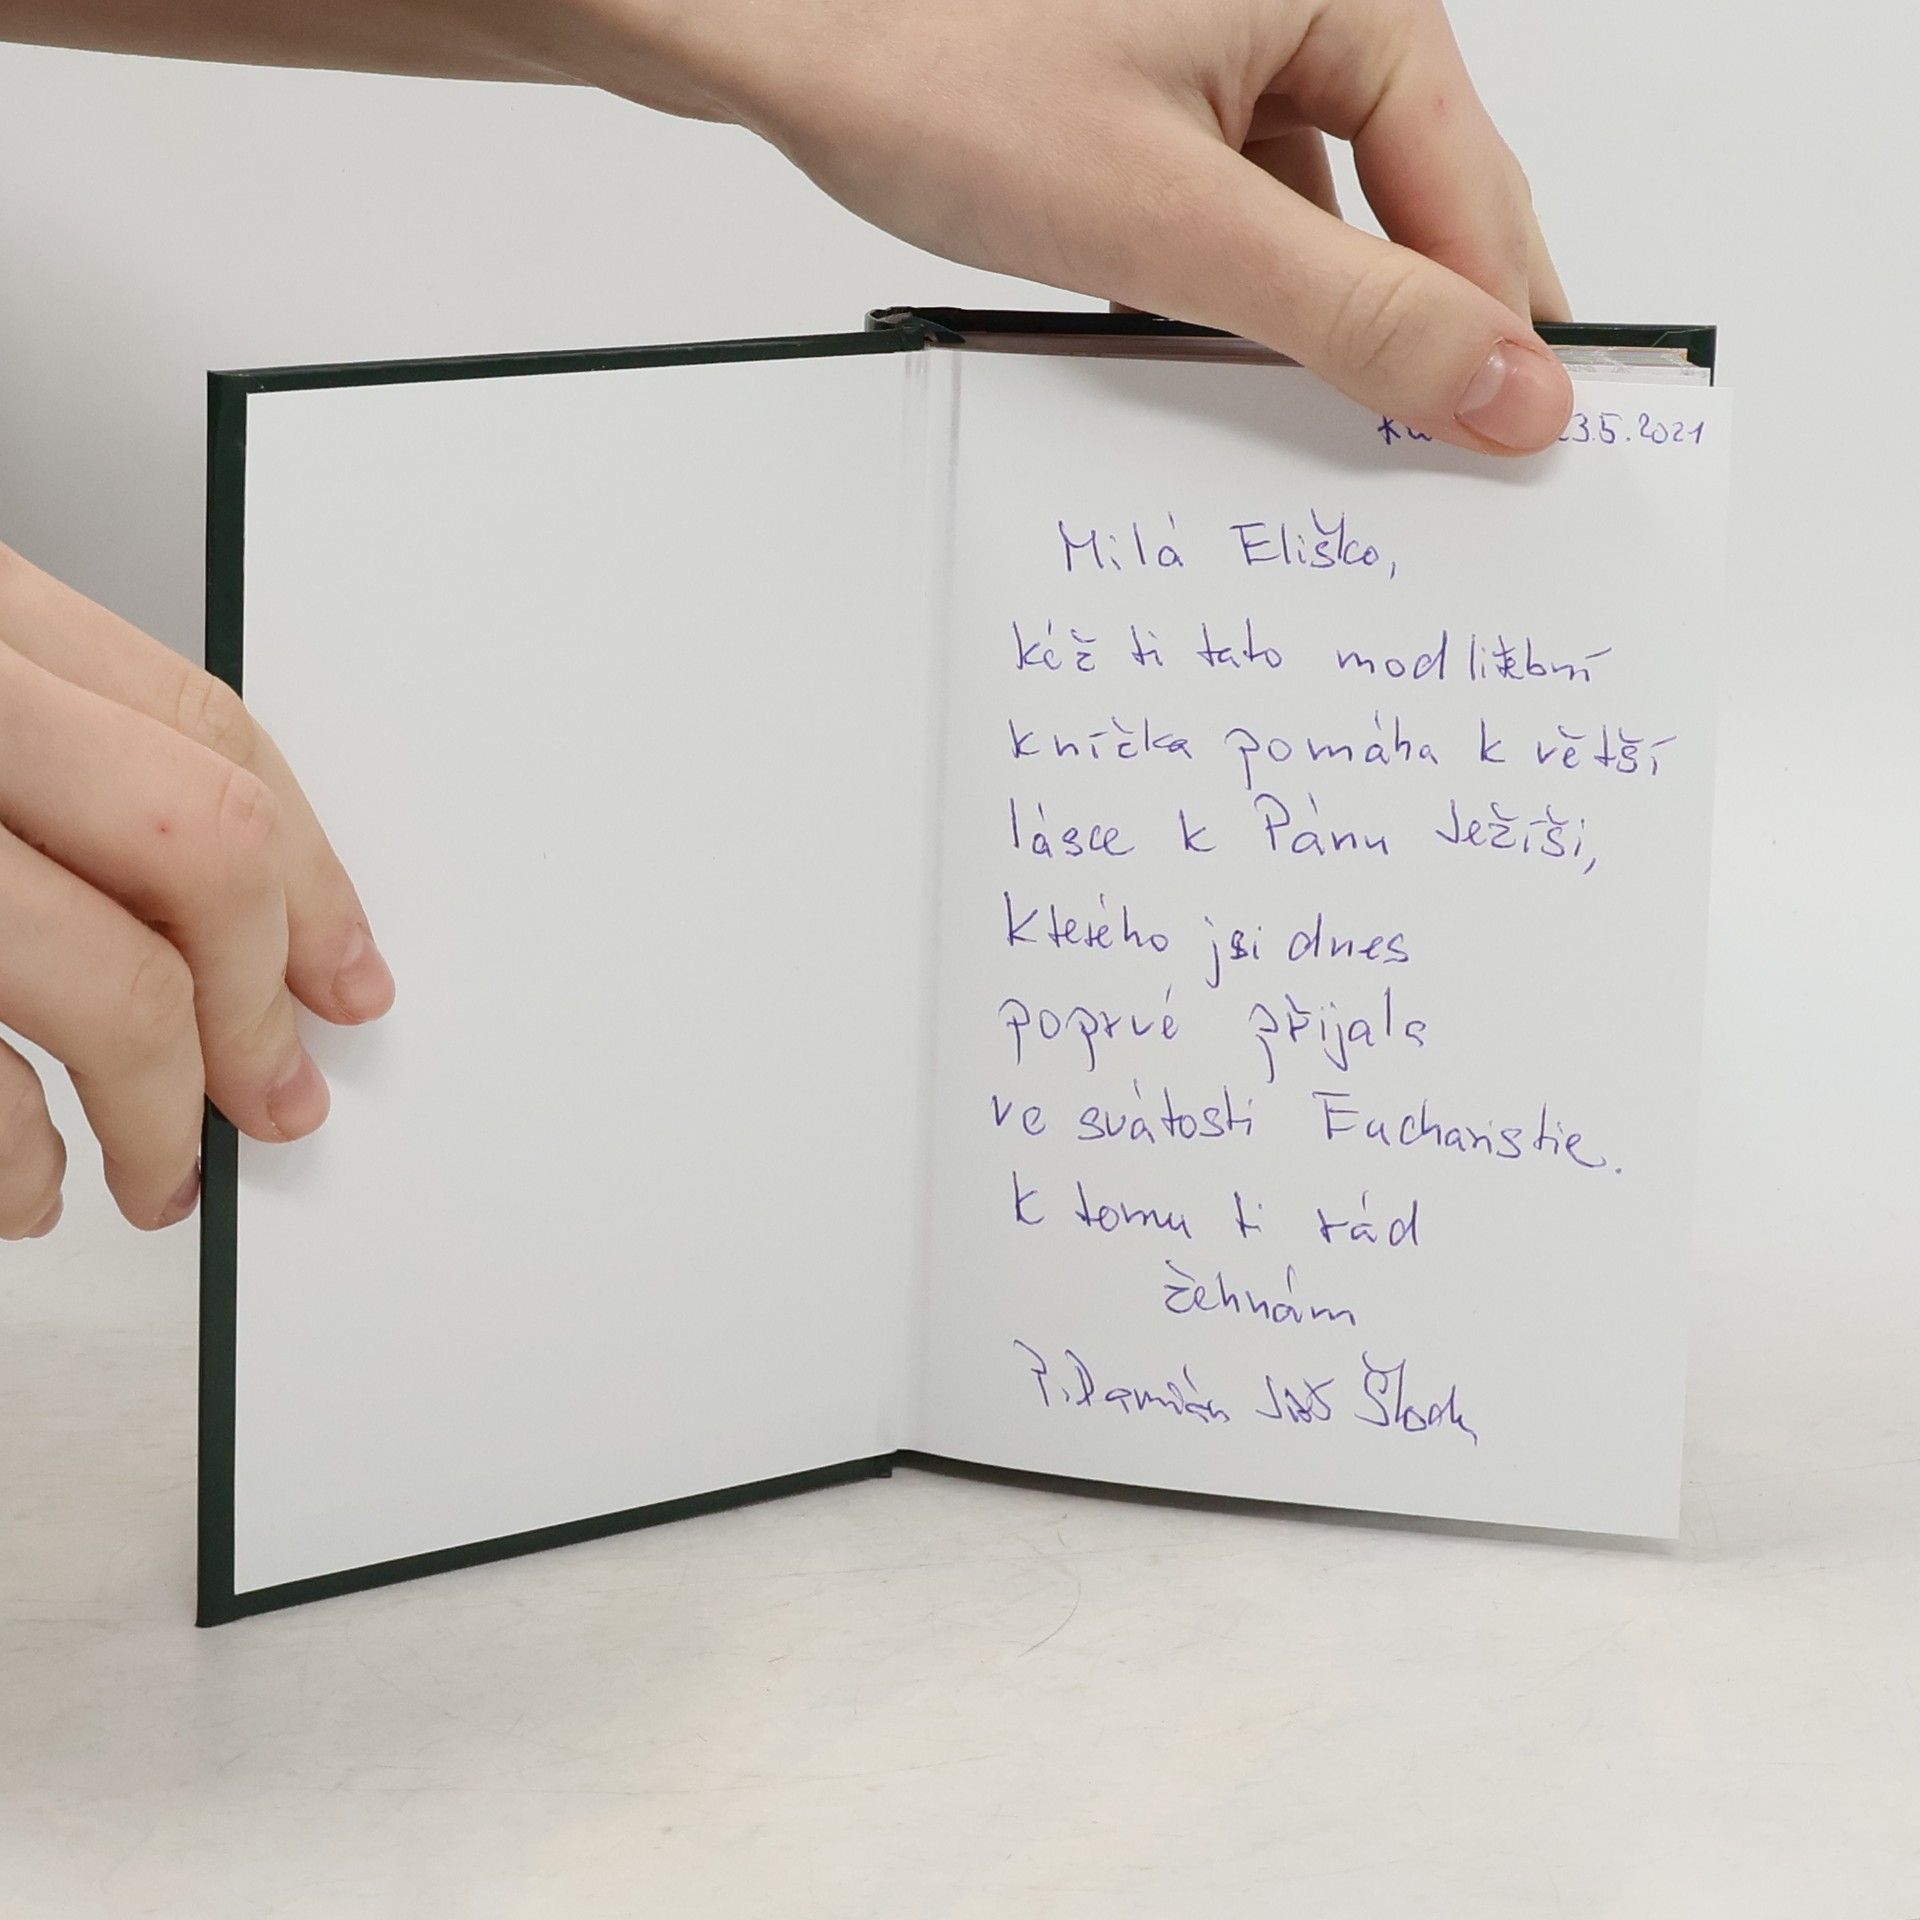 3.5.2021
Milá Eliško,
kéž ti tato modlitební
knížka pomáha k větší
lásce k Pánu Ježíši,
kterého jsi dnes
poprvé přijala
ve svátosti Eucharistie.
K tomu ti rád
žehnám
P. Damián